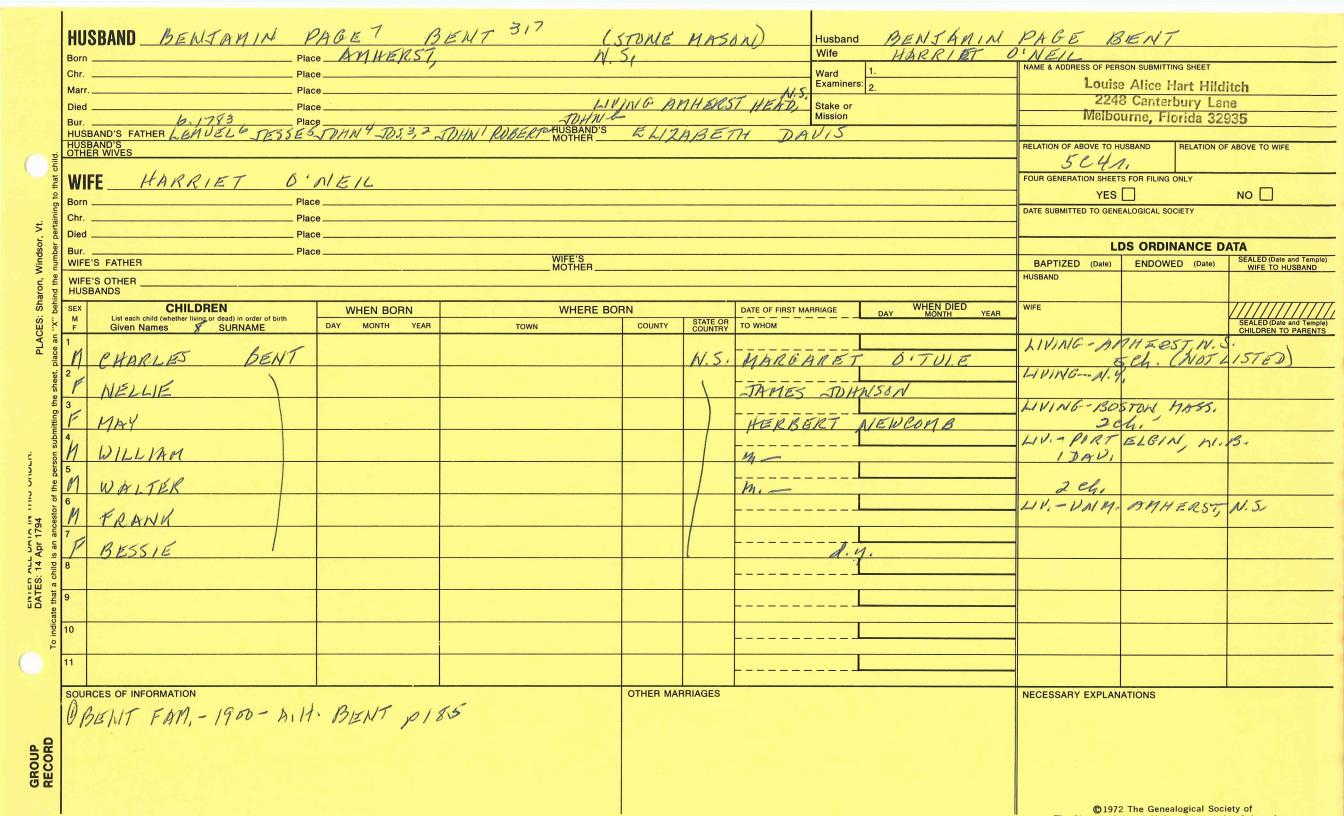 HUSBAND BENJAMIN PAGE 7 BENT 317 (STONE MASON)
Born Place AMHERST, N.S.
Chr. Place
Marr. Place
Died Place LIVING AMHERST HEAD, N.S.
Bur. b.1783 Place JOHN
HUSBAND'S FATHER LEMUEL6 JESSE5 JOHN4 JOS.3,2 JOHN1 ROBERT HUSBAND'S MOTHER ELIZABETH DAVIS
HUSBAND'S OTHER WIVES
Husband BENJAMIN PAGE BENT
Wife HARRIET O'NEIL
Ward Examiners: 1.
2.
Stake or Mission
NAME & ADDRESS OF PERSON SUBMITTING SHEET
Louise Alice Hart Hilditch
2248 Canterbury Lane
Melbourne, Florida 32935
RELATION OF ABOVE TO HUSBAND RELATION OF ABOVE TO WIFE
5C4r.
FOUR GENERATION SHEETS FOR FILING ONLY
YES NO
DATE SUBMITTED TO GENEALOGICAL SOCIETY
WIFE HARRIET O'NEIL
Born Place
Chr. Place
Died Place
Bur. Place
WIFE'S FATHER WIFE'S MOTHER
WIFE'S OTHER HUSBANDS
LDS ORDINANCE DATA
BAPTIZED (Date) ENDOWED (Date) SEALED (Date and Temple) WIFE TO HUSBAND
HUSBAND
WIFE
SEALED (Date and Temple) CHILDREN TO PARENTS
SEX M F
CHILDREN
List each child (whether living or dead) in order of birth
Given Names 8 SURNAME
WHEN BORN
DAY MONTH YEAR
WHERE BORN
TOWN COUNTY STATE OR COUNTRY
DATE OF FIRST MARRIAGE
TO WHOM
WHEN DIED
DAY MONTH YEAR
1 M CHARLES BENT N.S. MARGARET O'TULE LIVING-AMHERST, N.S.
5 Ch. (NOT LISTED)
2 F NELLIE JAMES JOHNSON LIVING-N.Y.
3 F MAY HERBERT NEWCOMB LIVING-BOSTON, MASS.
2 ch.
4 M WILLIAM m.— LIV.-PORT ELGIN, N.B.
1 DAU.
5 M WALTER m.— 2 ch.
6 M FRANK LIV.-UNM. AMHERST, N.S.
7 F BESSIE d.y.
8
9
10
11
SOURCES OF INFORMATION
① BENT FAM.-1900-A.H. BENT p185
OTHER MARRIAGES
NECESSARY EXPLANATIONS
©1972 The Genealogical Society of
PLACES: Sharon, Windsor, Vt.
DATES: 14 Apr 1794
To indicate that a child is an ancestor of the person submitting the sheet, place an "X" behind the number pertaining to that child.
GROUP RECORD